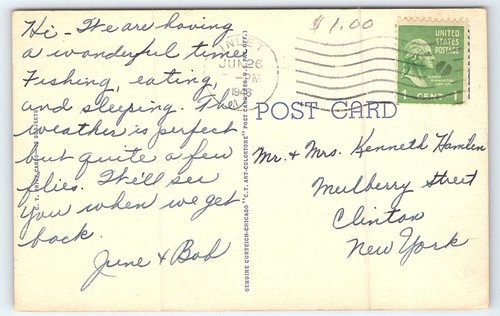 Hi - We are having
a wonderful time
Fishing, eating,
and sleeping. The
weather is perfect
but quite a few
flies. We'll see
you when we get
back.
June + Bob
$1.00
INLET
JUN 26
PM
N.Y.
UNITED
STATES
POSTAGE
1 CENT 1
POST CARD
GENUINE CURTEICH-CHICAGO "C.T. ART-COLORTONE" POST CARD
Mr. + Mrs. Kenneth Hamlen
Mulberry Street
Clinton
New York